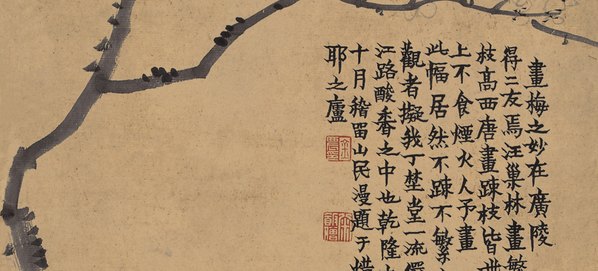 畫梅之妙在廣陵
得二友焉汪巢林畫繁
枝高西唐畫疎枝皆世
上不食煙火人予畫
此幅居然不疎不繁
觀者擬我丁埜堂一流儼
江路酸香之中也乾隆
十月稽留山民漫題于蜡
耶之廬